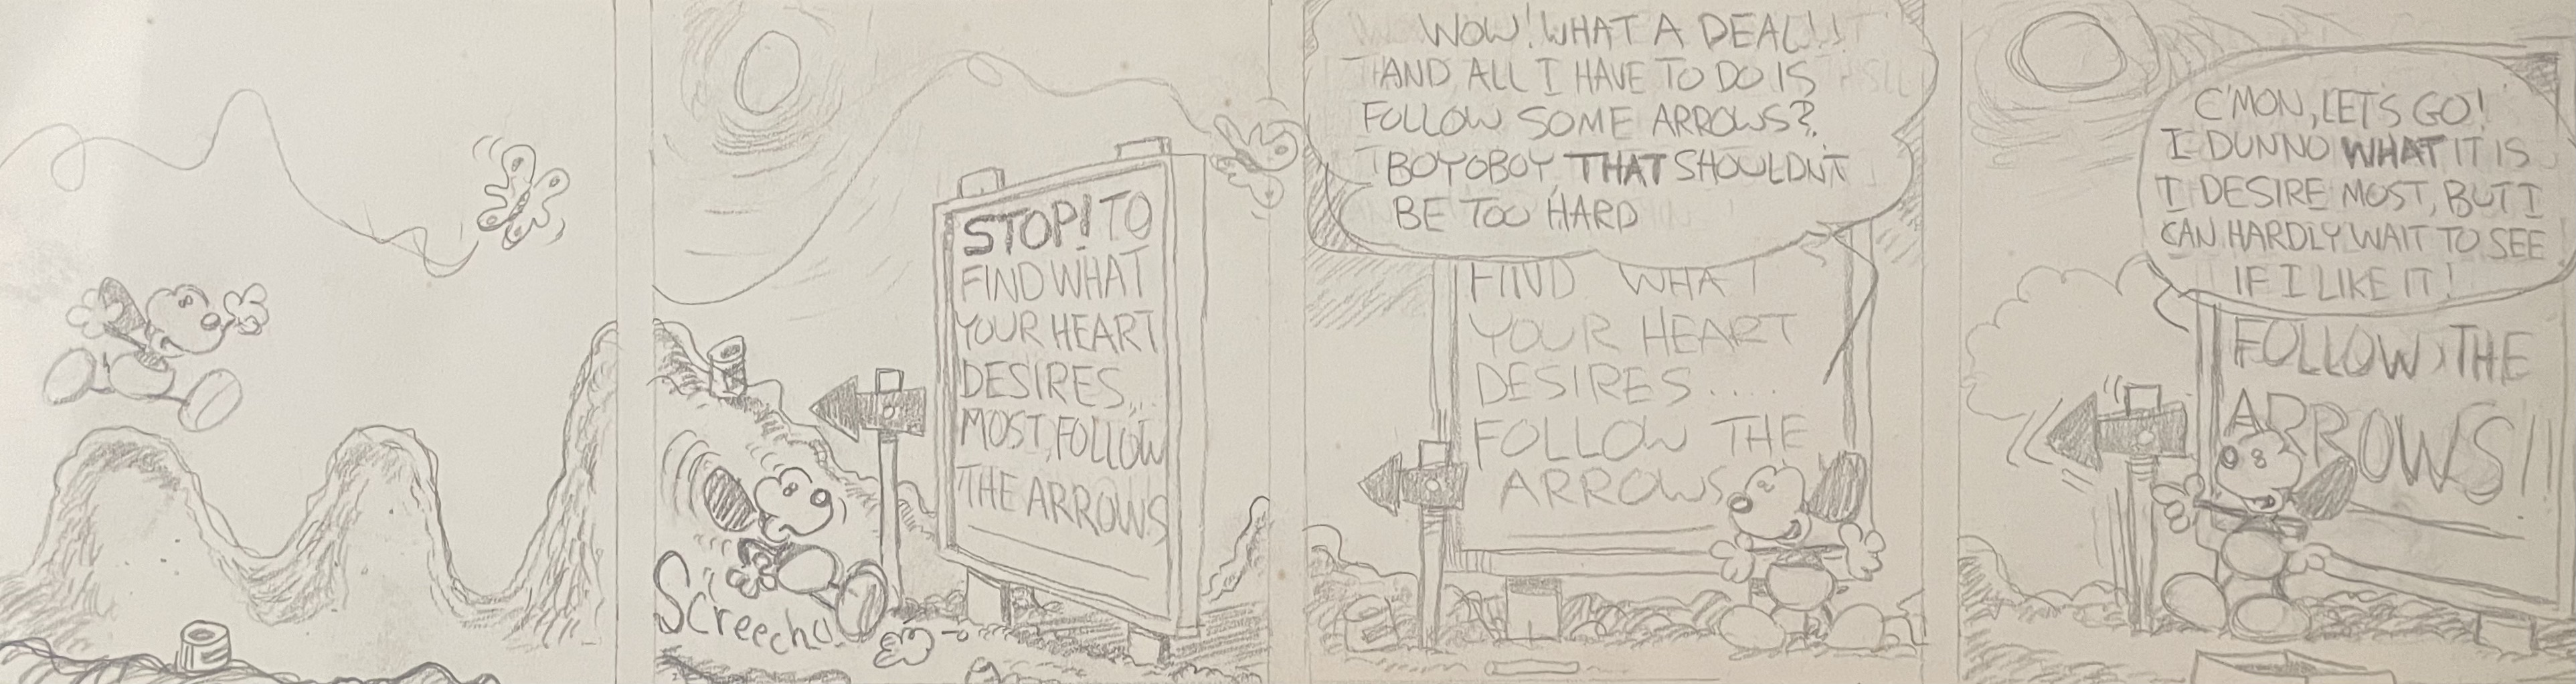 STOP! TO
FIND WHAT
YOUR HEART
DESIRES...
MOST, FOLLOW
THE ARROWS
Screech
WOW! WHAT A DEAL!!
AND ALL I HAVE TO DO IS
FOLLOW SOME ARROWS?
BOYOBOY, THAT SHOULDN'T
BE TOO HARD
FIND WHAT
YOUR HEART
DESIRES....
FOLLOW THE
ARROWS
C'MON, LET'S GO!
I DUNNO WHAT IT IS
I DESIRE MOST, BUT I
CAN HARDLY WAIT TO SEE
IF I LIKE IT!
FOLLOW THE
ARROWS!!